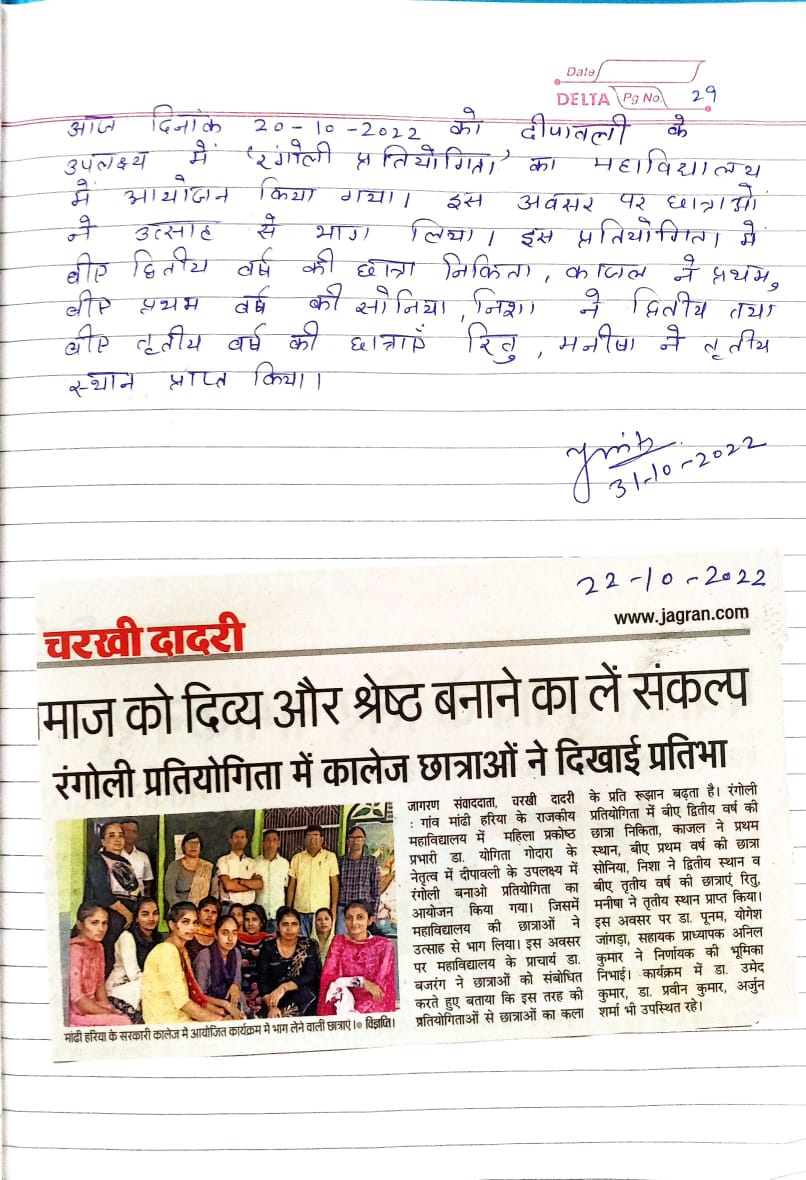 Date
DELTA Pg No. 29
आज दिनांक 20-10-2022 को दीपावली के
उपलक्ष्य में 'रंगोली प्रतियोगिता' का महाविद्यालय
में आयोजन किया गया। इस अवसर पर छात्राओं
ने उत्साह से भाग लिया। इस प्रतियोगिता में
बीए द्वितीय वर्ष की छात्रा निकिता, काजल ने प्रथम,
बीए प्रथम वर्ष की सोनिया, निशा ने द्वितीय तथा
बीए तृतीय वर्ष की छात्राएँ रितु, मनीषा ने तृतीय
स्थान प्राप्त किया।
31-10-2022
22-10-2022
www.jagran.com
चरखी दादरी
माज को दिव्य और श्रेष्ठ बनाने का लें संकल्प
रंगोली प्रतियोगिता में कालेज छात्राओं ने दिखाई प्रतिभा
जागरण संवाददाता, चरखी दादरी
: गांव मांढी हरिया के राजकीय
महाविद्यालय में महिला प्रकोष्ठ
प्रभारी डा. योगिता गोदारा के
नेतृत्व में दीपावली के उपलक्ष्य में
रंगोली बनाओ प्रतियोगिता का
आयोजन किया गया। जिसमें
महाविद्यालय की छात्राओं ने
उत्साह से भाग लिया। इस अवसर
पर महाविद्यालय के प्राचार्य डा.
बजरंग ने छात्राओं को संबोधित
करते हुए बताया कि इस तरह की
प्रतियोगिताओं से छात्राओं का कला
के प्रति रूझान बढ़ता है। रंगोली
प्रतियोगिता में बीए द्वितीय वर्ष की
छात्रा निकिता, काजल ने प्रथम
स्थान, बीए प्रथम वर्ष की छात्रा
सोनिया, निशा ने द्वितीय स्थान व
बीए तृतीय वर्ष की छात्राएं रितु,
मनीषा ने तृतीय स्थान प्राप्त किया।
इस अवसर पर डा. पूनम, योगेश
जांगड़ा, सहायक प्राध्यापक अनिल
कुमार ने निर्णायक की भूमिका
निभाई। कार्यक्रम में डा. उमेद
कुमार, डा. प्रवीन कुमार, अर्जुन
शर्मा भी उपस्थित रहे।
मांढी हरिया के सरकारी कालेज में आयोजित कार्यक्रम में भाग लेने वाली छात्राएं।● विज्ञप्ति।